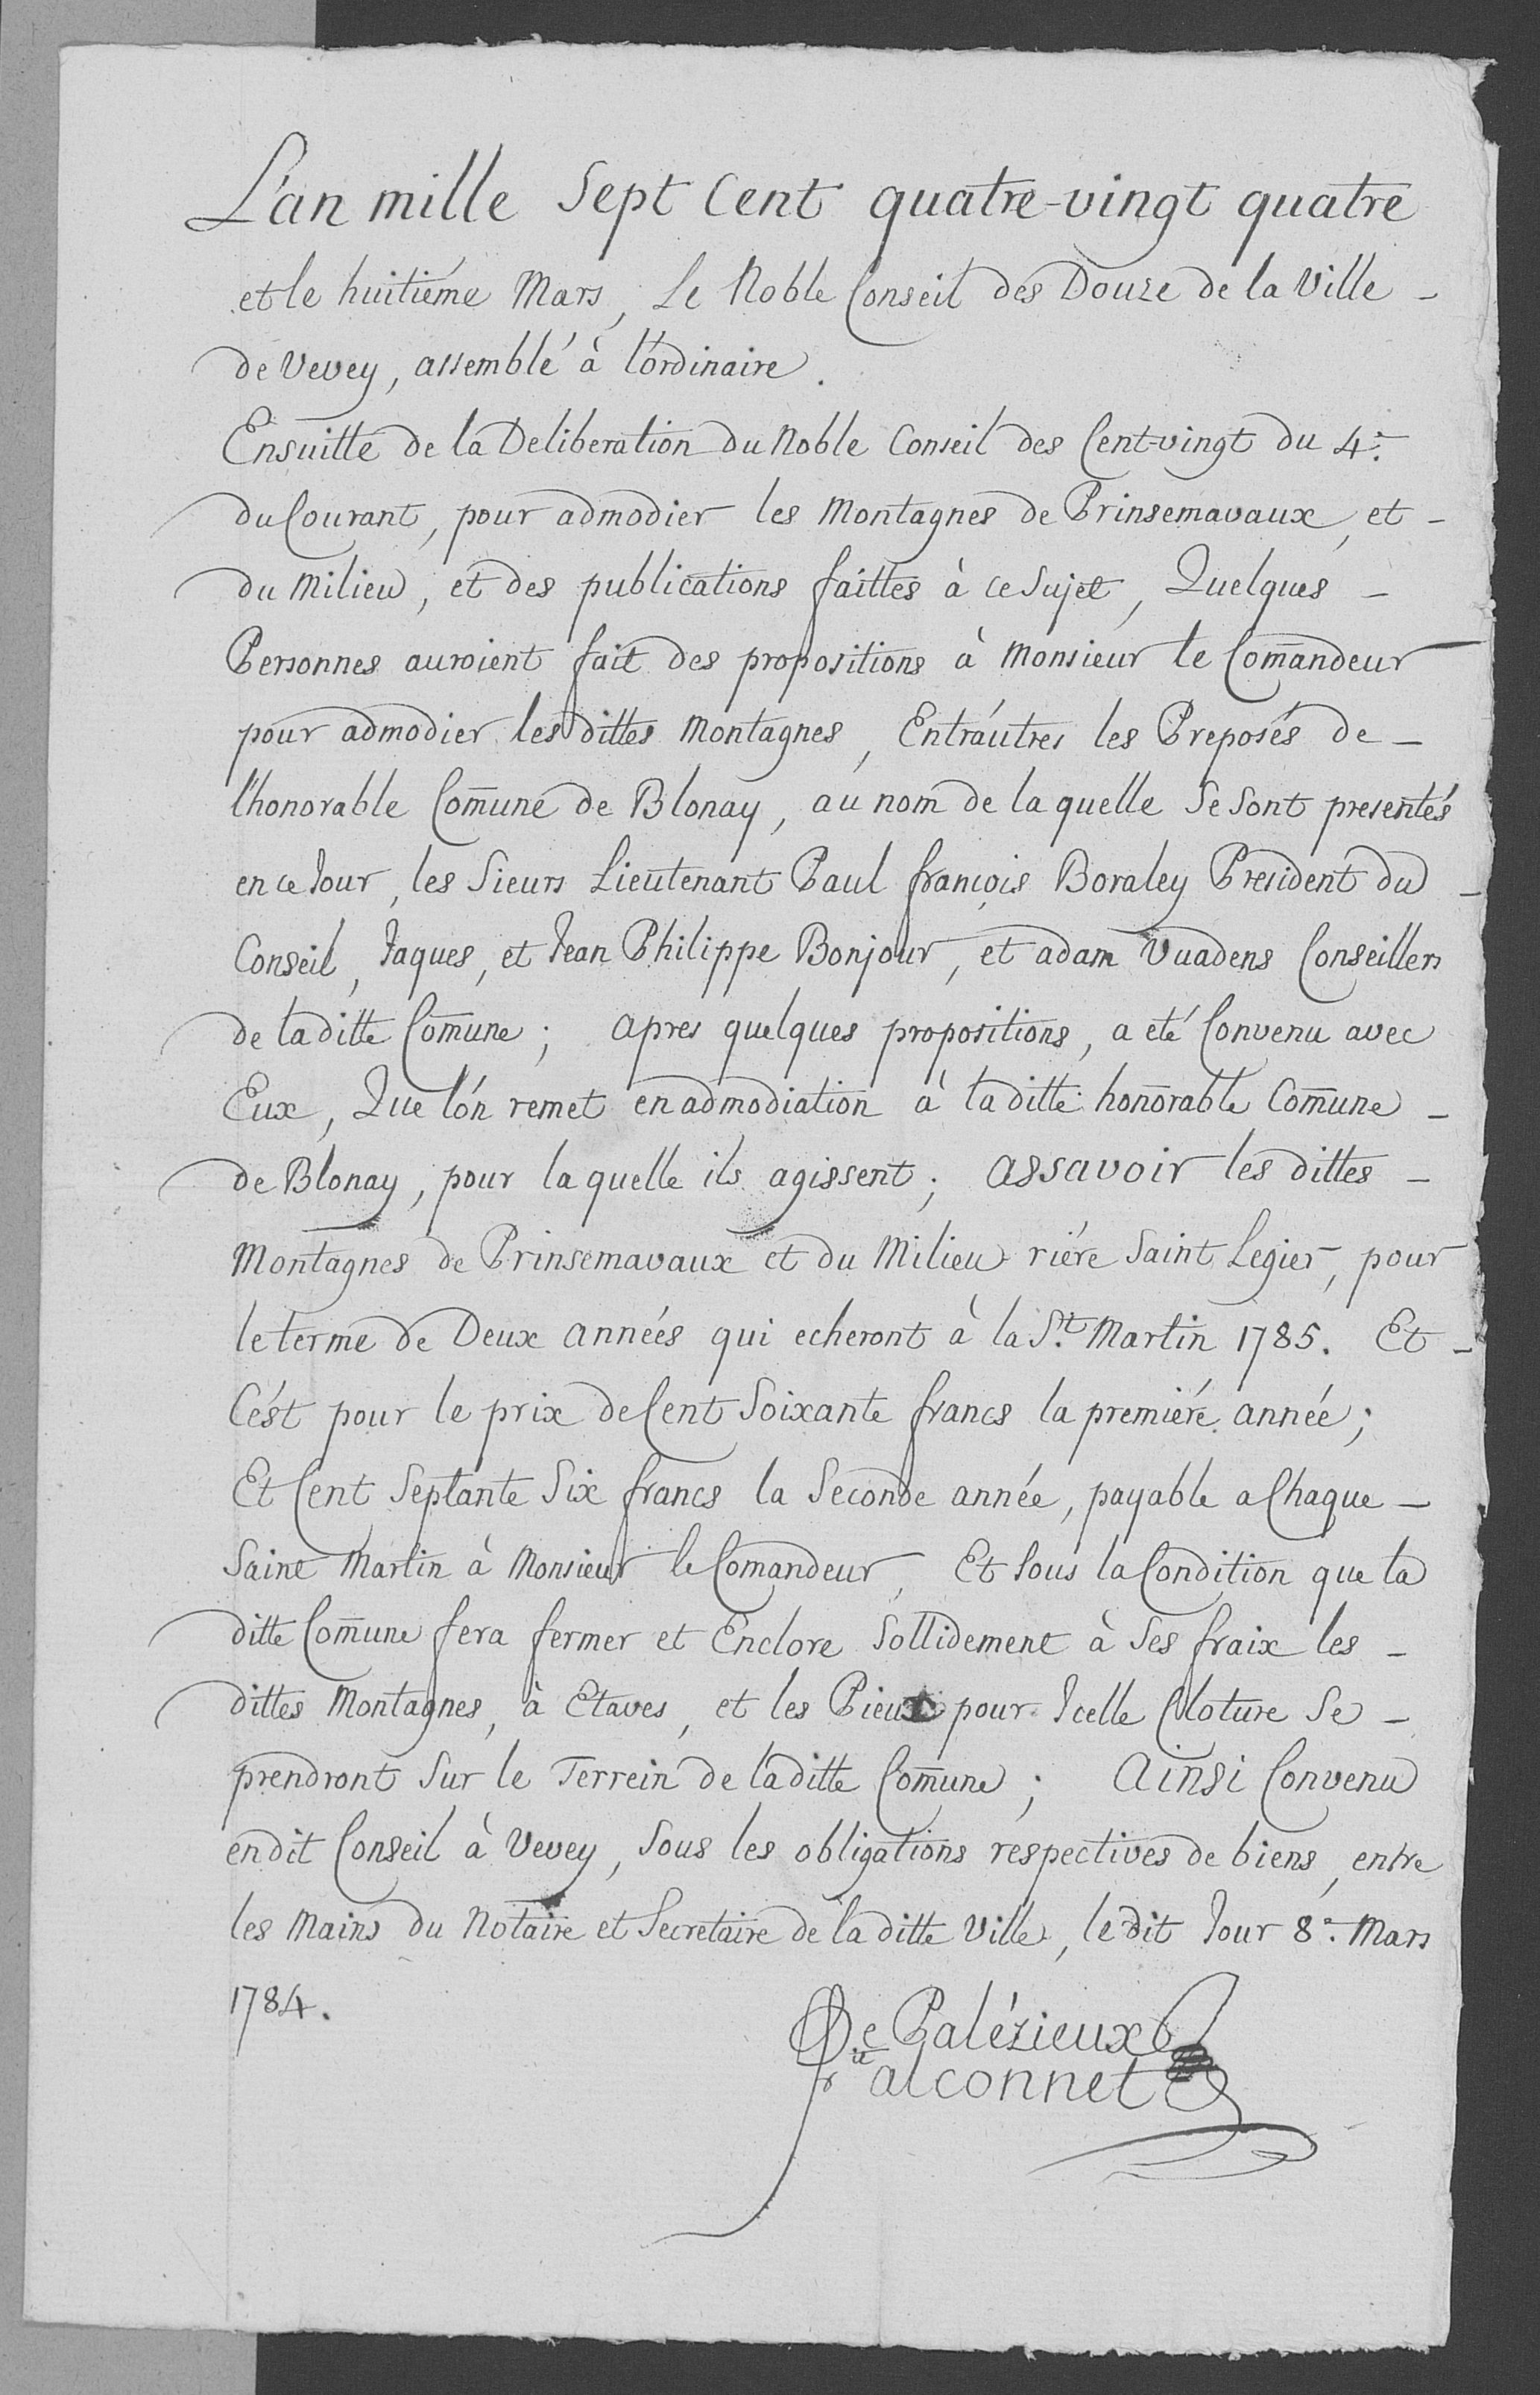 L'an mille Sept Cent quatre-vingt quatre
et le huitiéme Mars, Le Noble Conseil des Douze de la Ville -
de Vevey, assemblé à l'ordinaire.
Ensuitte de la Deliberation du Noble Conseil des Cent-vingt du 4.e
du Courant, pour admodier les Montagnes de Prinsemavaux, et -
du Milieu, et des publications faittes à ce Sujet, Quelques -
Personnes auroient fait des propositions à Monsieur le Com̄andeur
pour admodier les dittes Montagnes, Entr'autres les Preposés de -
l'honorable Com̄une de Blonay, au nom de la quelle Se Sont presentés
en ce Jour, les Sieurs Lieutenant Paul françois Boraley President du -
Conseil, Jaques, et Jean Philippe Bonjour, et adam Vuadens Conseillers
de la ditte Com̄une; apres quelques propositions, a eté Convenu avec
Eux, Que l'on remet en admodiation à la ditte honorable Com̄une -
de Blonay, pour la quelle ils agissent; assavoir les dittes -
Montagnes de Prinsemavaux et du Milieu riére Saint Legier, pour
le terme de Deux années qui echeront à la S.t Martin 1785. Et -
C'est pour le prix de Cent Soixante francs la premiére année;
Et Cent Septante Six francs la Seconde année, payable a Chaque -
Saint Martin à Monsieur le Comandeur, Et Sous la Condition que la
ditte Com̄une fera fermer et Enclore Sollidement à Ses fraix les -
dittes Montagnes, à Etaves, et les Pieux pour Icelle Cloture Se -
prendront Sur le Terrein de la ditte Com̄une; Ainsi Convenu
en dit Conseil à Vevey, Sous les obligations respectives de biens, entre
les Mains du Notaire et Secretaire de la ditte Ville, le dit Jour 8.e Mars
1784.
De Palézieux
Falconnet